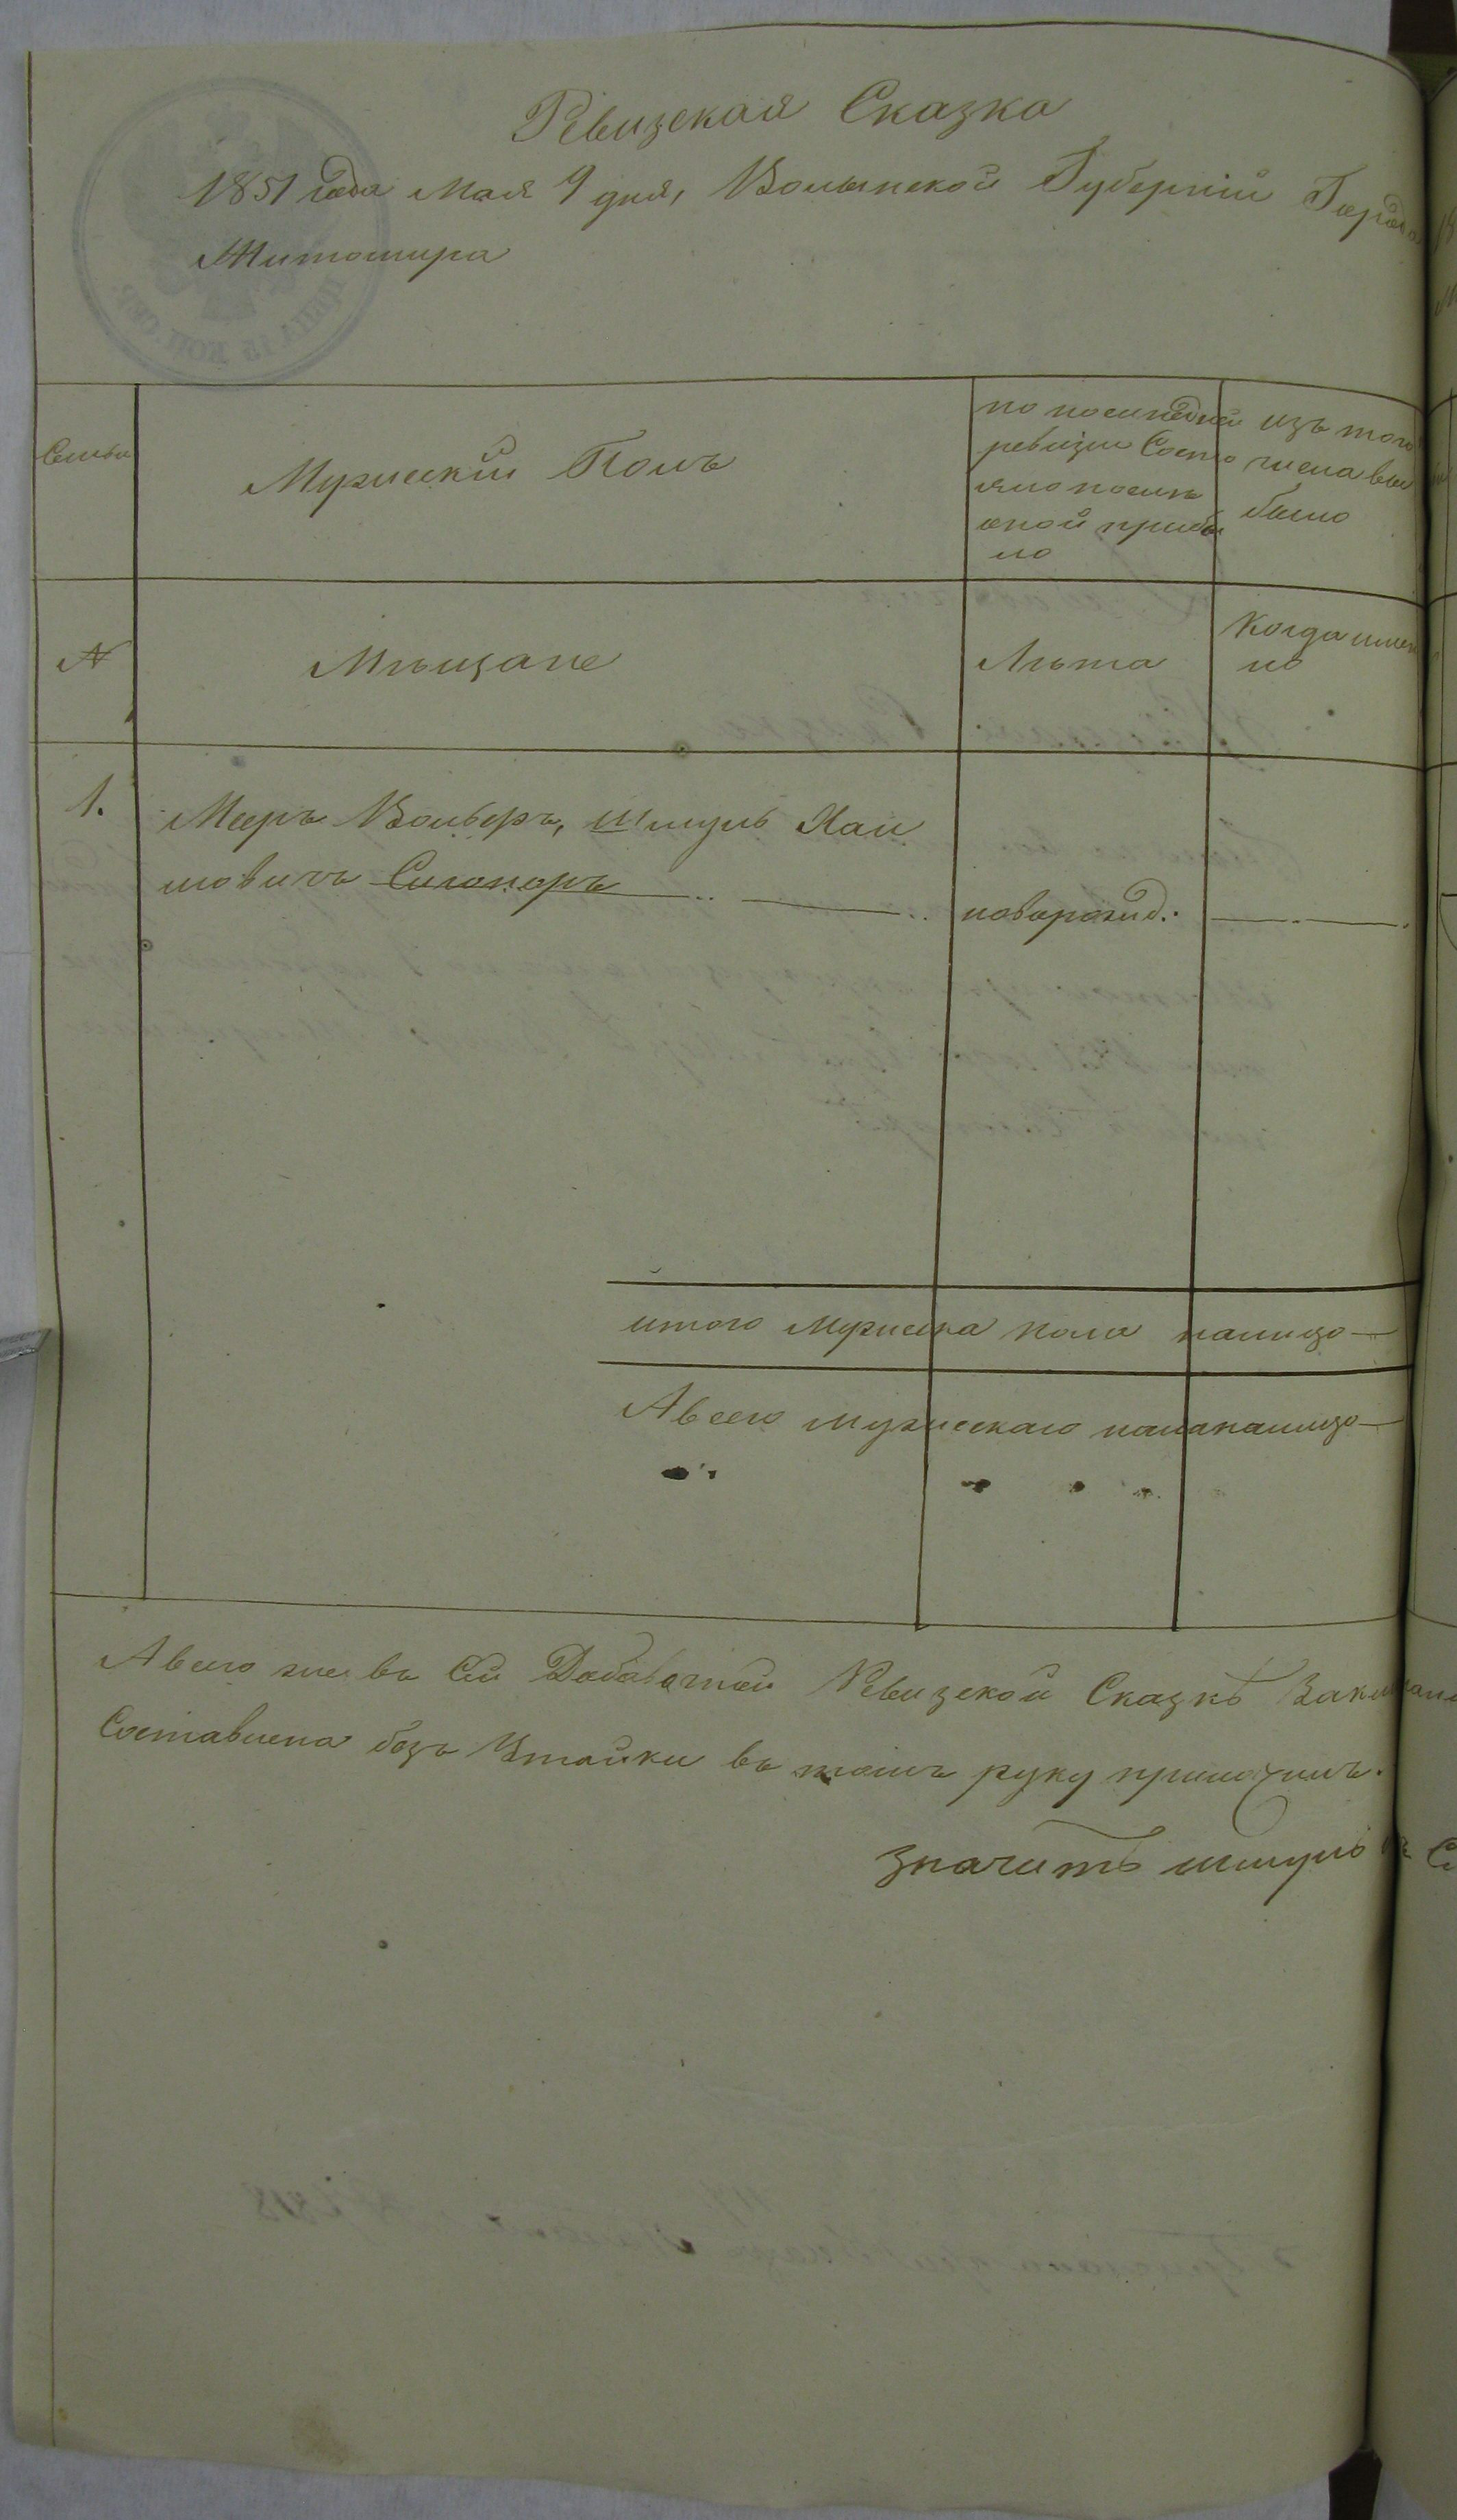 Ревизская Сказка
1851 года Мая 9 дня, Волынской Губерніи Города
Житомира
ЦѢНА 15 КОП. СЕР.
Семьи
Мужескій Полъ
по последней
ревизіи Состо
яло и после
оной прибы
ло
изъ того
числа вы
было
N
Мѣщане
Лѣта
Когда имен
но
1.
Мееръ Вольфъ, Шмуль Хаи
мовичъ
новорожд.
итого мужеска пола налицо
А всего мужескаго пола налицо
А всего же въ Сей Добавочной Ревизской Сказкѣ
Составлена безъ Утайки въ томъ руку приложилъ.
значитъ шмуль